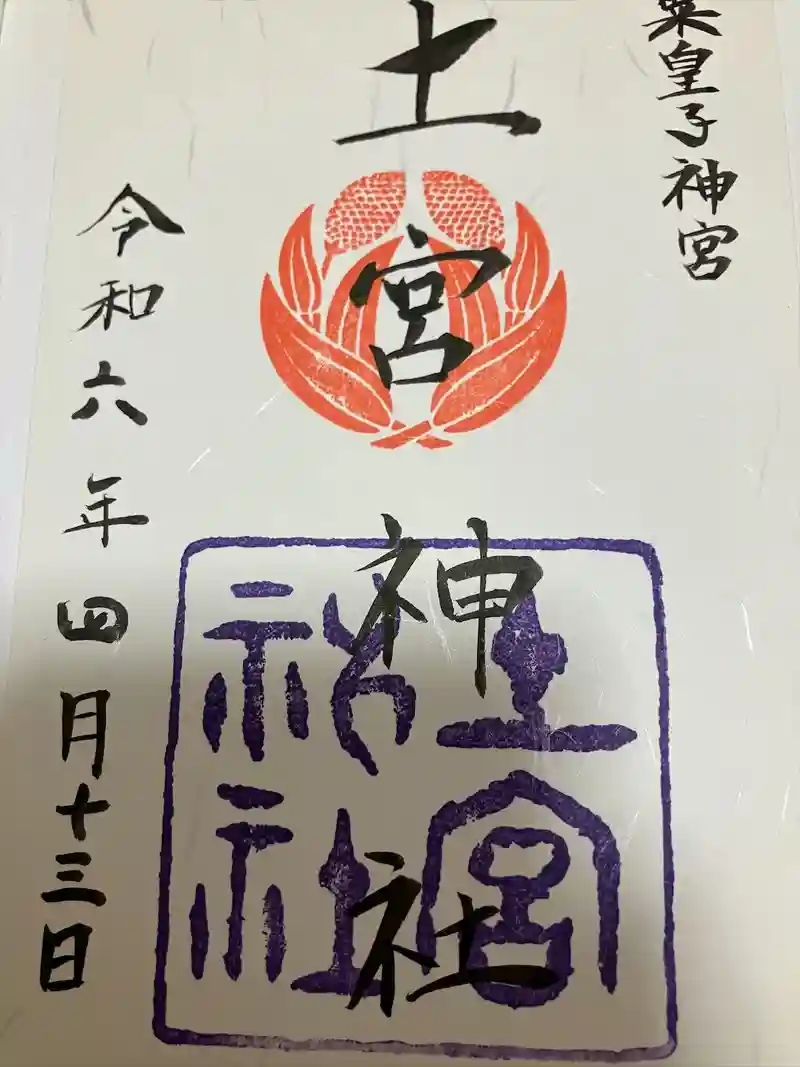 粟皇子神宮
土宮神社
令和六年四月十三日
土宮
神社